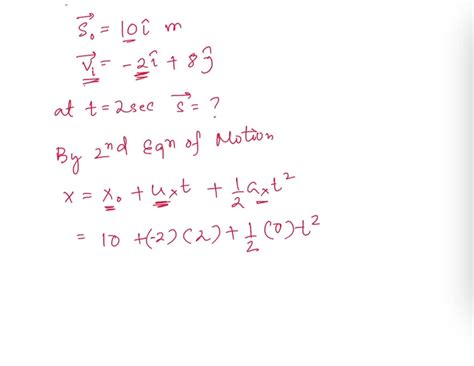 S⃗₀ = 10î m
V⃗ᵢ = -2î + 8ĵ
at t = 2sec S⃗ = ?
By 2nd Eqn of Motion
x = x₀ + uₓt + 1/2 aₓt²
= 10 + (-2) (2) + 1/2 (0) t²